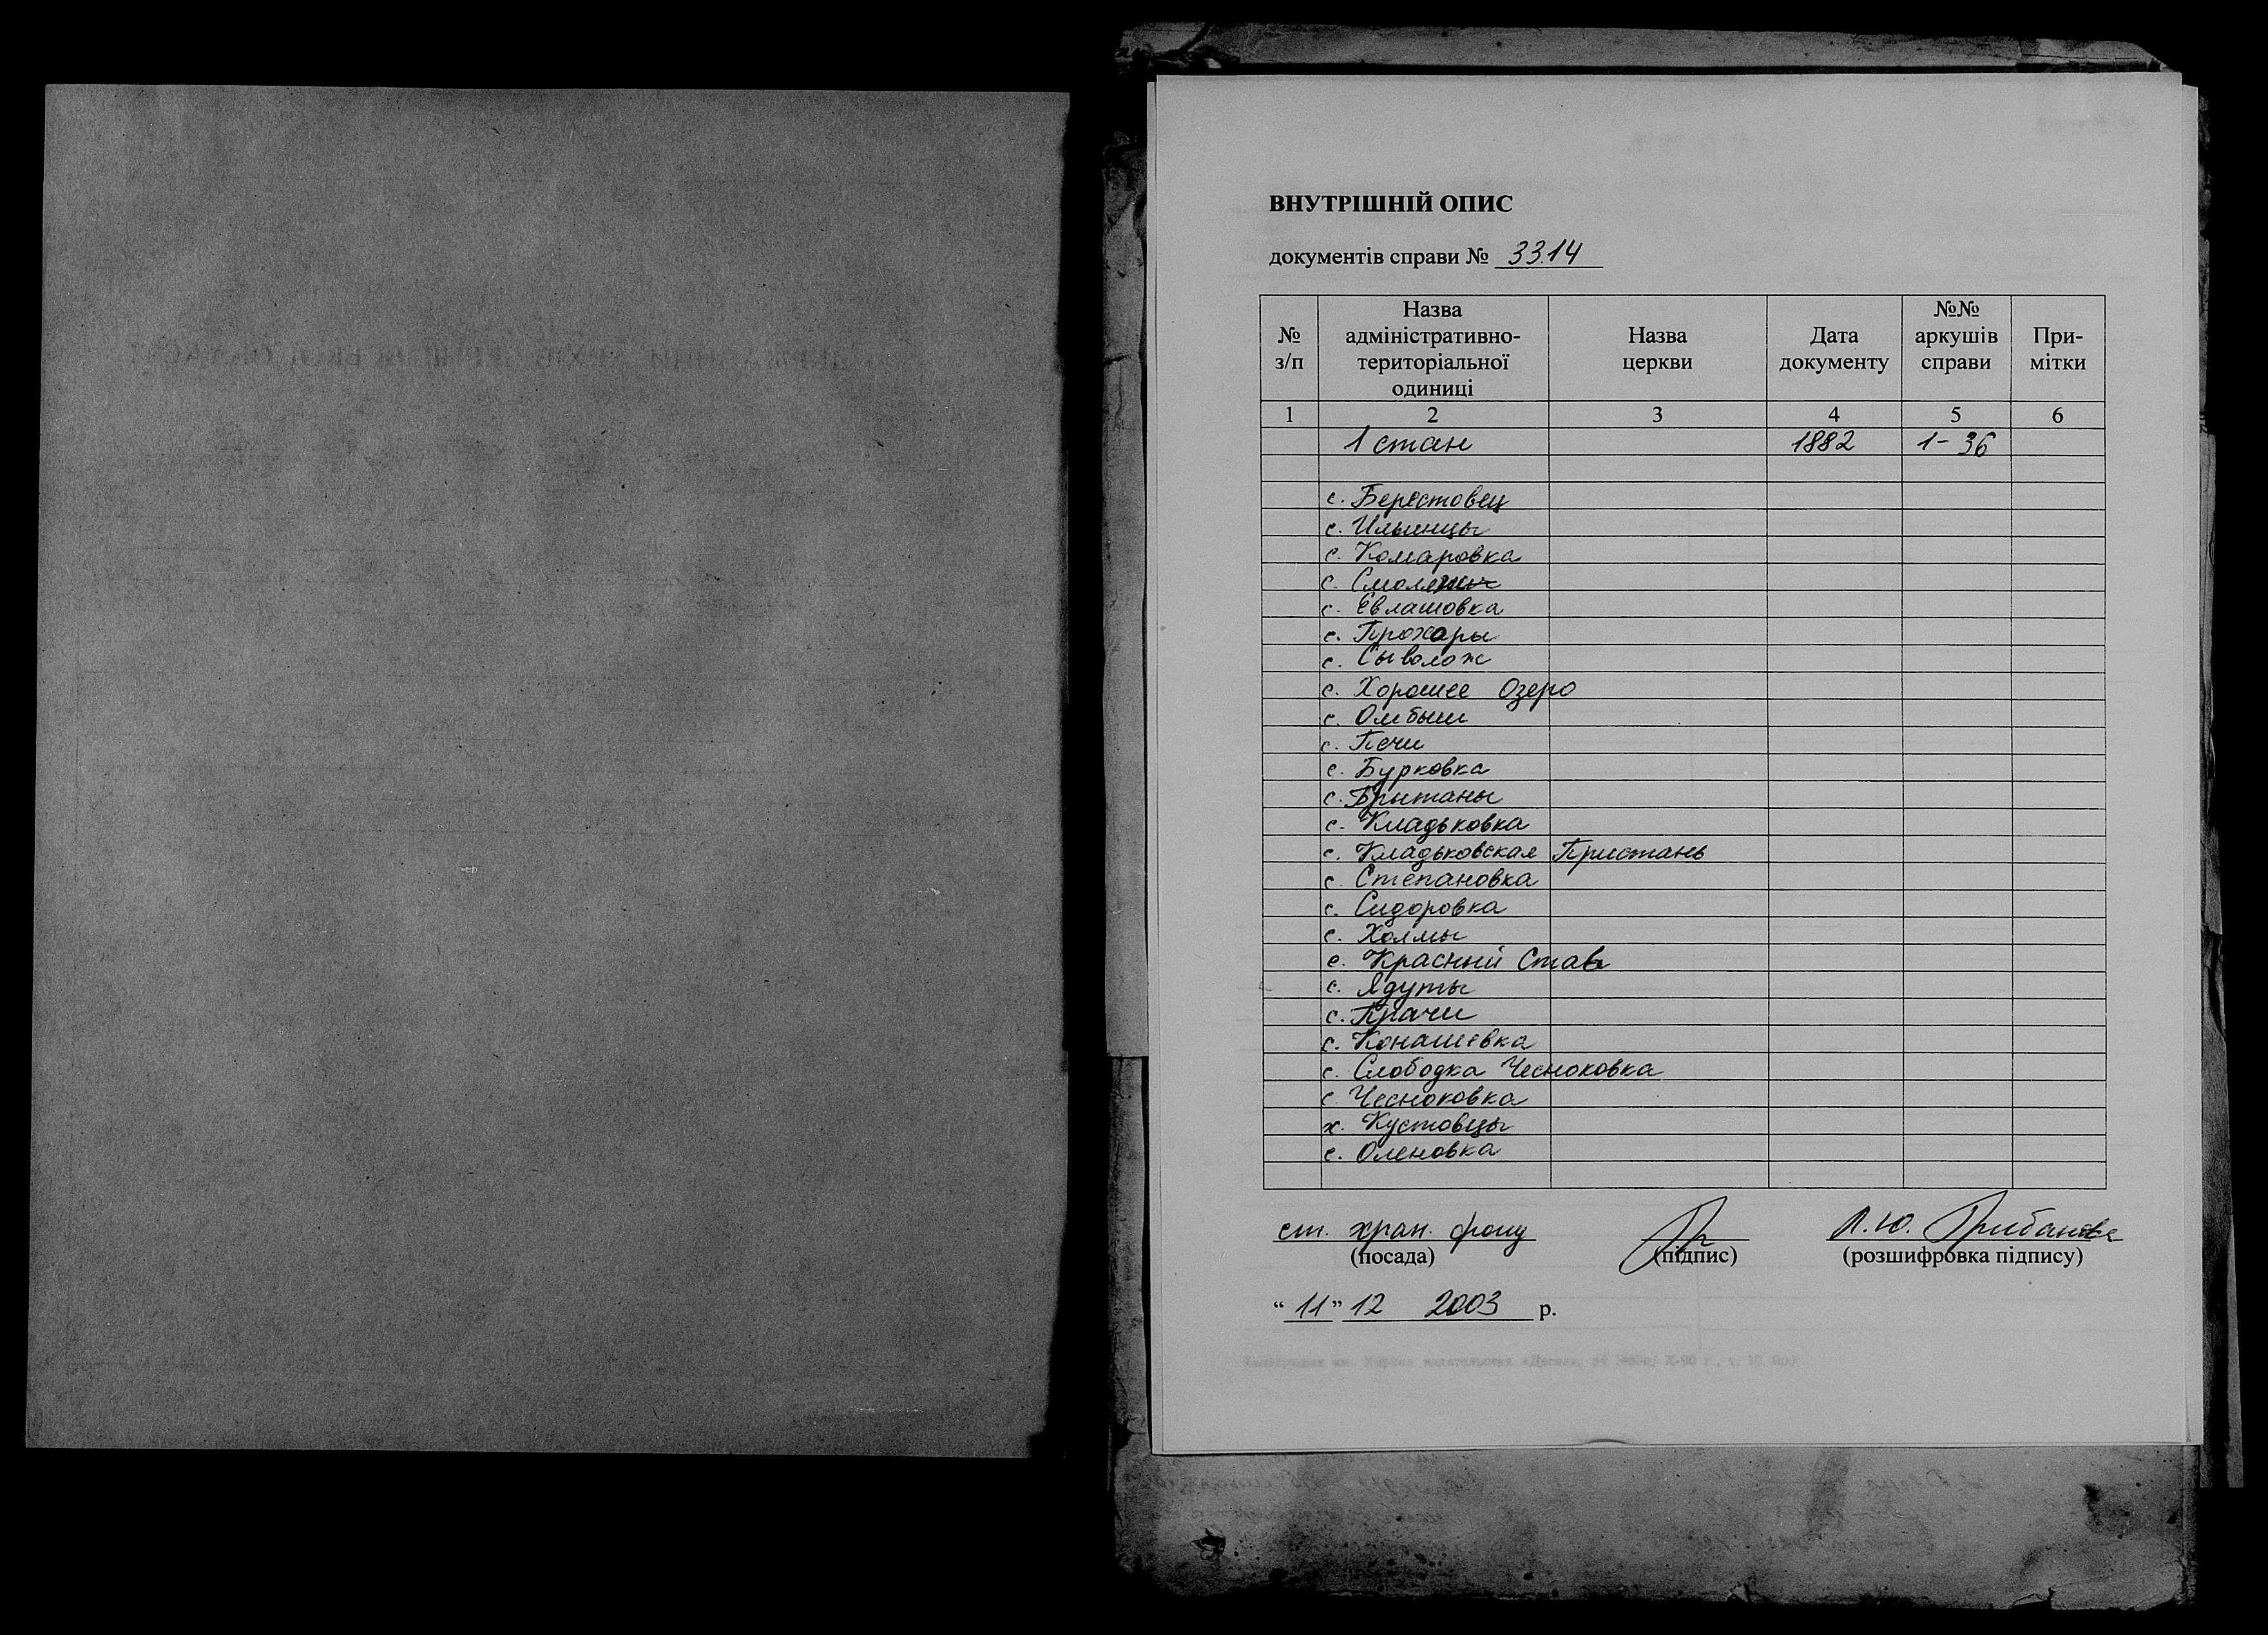 ВНУТРІШНІЙ ОПИС
документів справи № 3314
№ з/п
Назва адміністративно-територіальної одиниці
Назва церкви
Дата документу
№№ аркушів справи
При-мітки
1 2 3 4 5 6
1 стан 1882 1-36
с. Берестовец
с. Ильинцы
с. Комаровка
с.
с. Евлашовка
с. Прохоры
с. Сыволож
с. Хорошее Озеро
с. Омбыш
с. Печи
с. Бурковка
с. Британы
с. Кладьковка
с. Кладьковская Пристань
с. Степановка
с. Сидоровка
с. Холмы
с. Красный Став
с. Ядуты
с. Прачи
с. Конашевка
с. Слободка Чесноковка
с. Чесноковка
х. Кустовцы
с. Оленовка
ст. хран. фонд Л.Ю. Грибанова
(посада) (підпис) (розшифровка підпису)
“ 11 ” 12 2003 р.